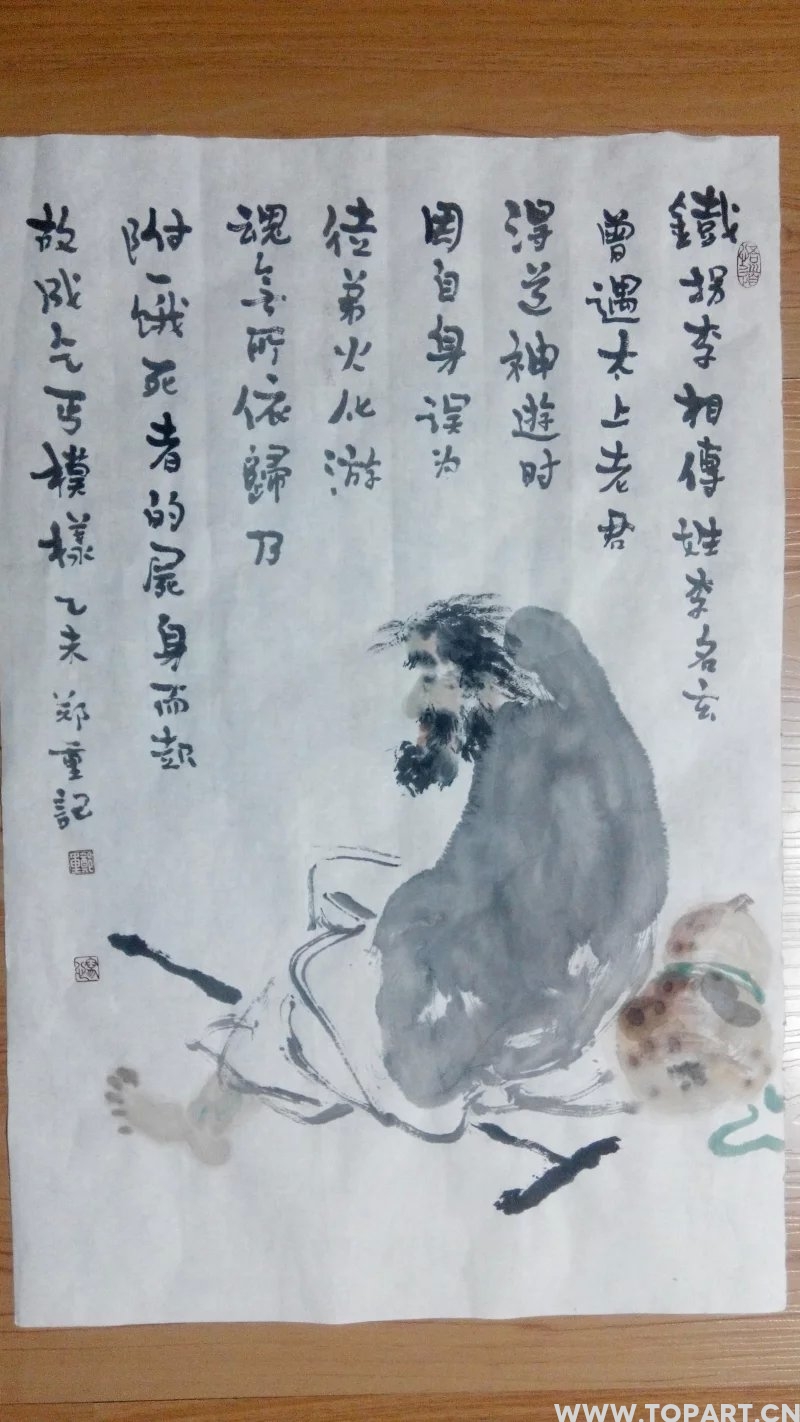 鐵拐李相傳姓李名玄
曾遇太上老君
得道神遊时
因自身误为
徒弟火化游
魂无所依歸乃
附一饿死者的屍身而起
故成乞丐模樣乙未郑重記
WWW.TOPART.CN